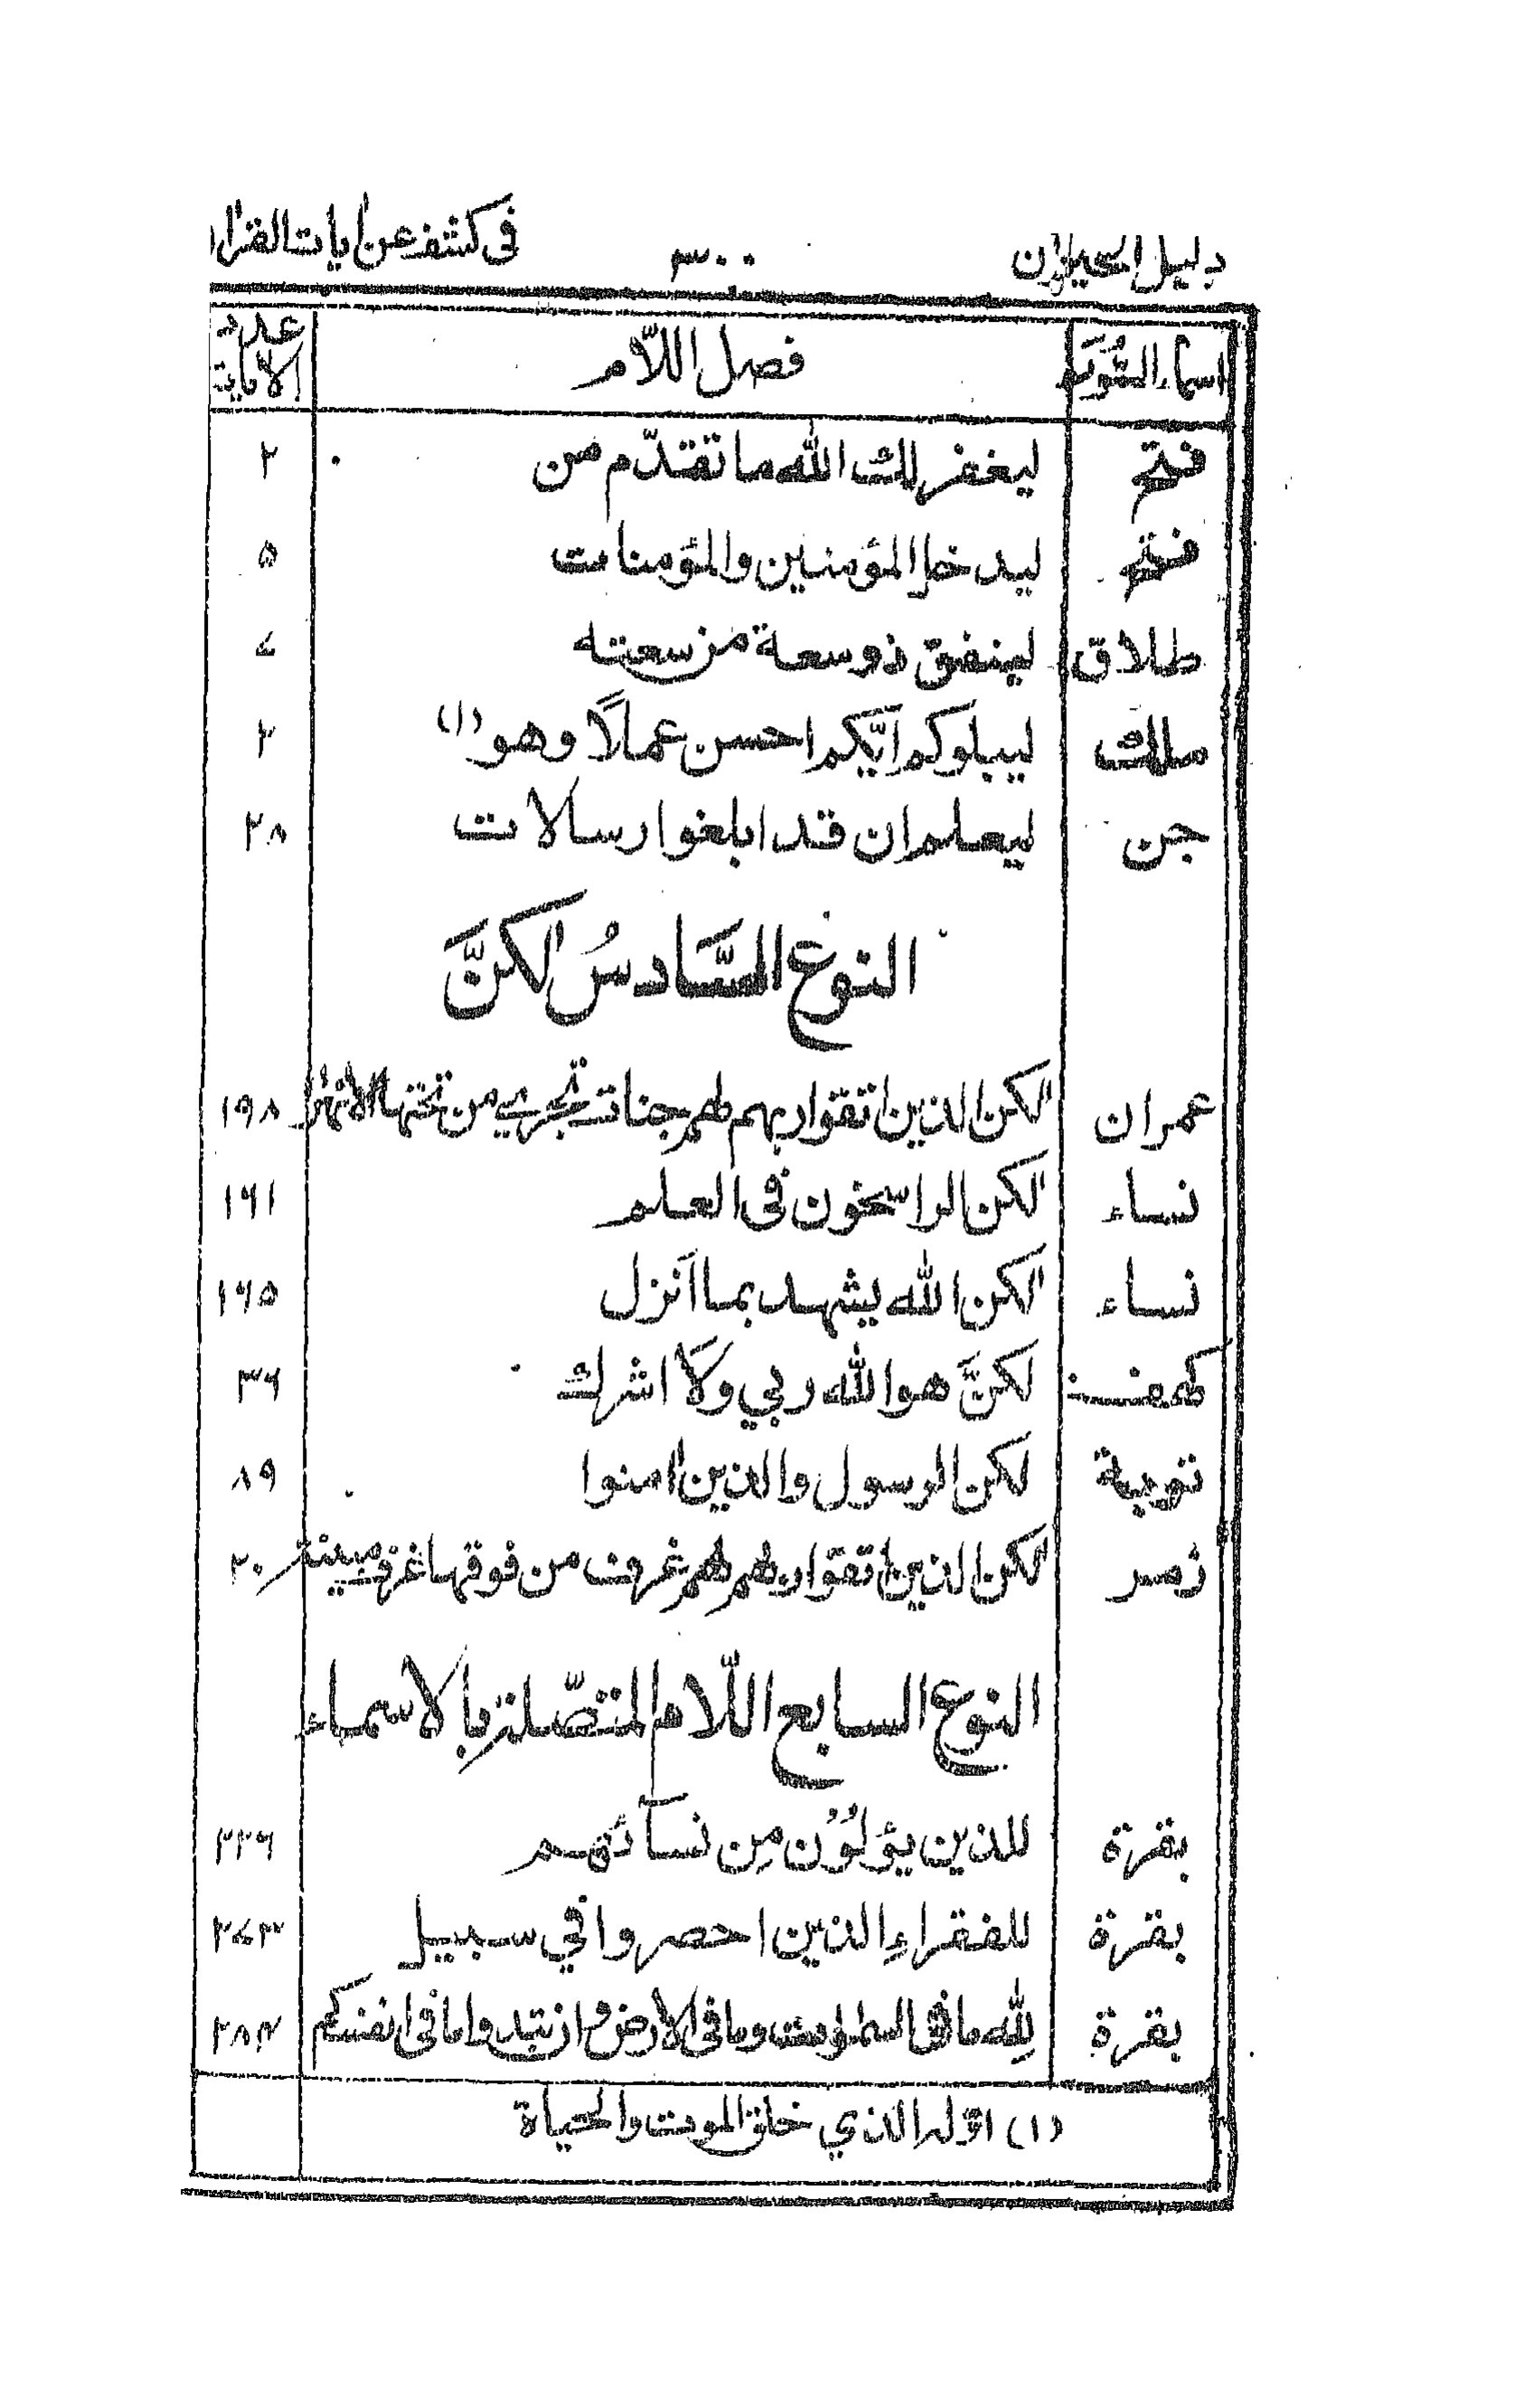 دليل الحيران ٣٠٠ في كشف عن ايات القران
اسماء السُّوَر فصل اللّام عدد الاية
فتح ليغفر لك الله ما تقدّم من ٢
فتح ليدخل المؤمنين والمؤمنات ۵
طلاق لينفق ذو سعة من سعته ٧
ملك ليبلوكم ايّكم احسن عملًا وهو (١) ٢
جن ليعلم ان قد ابلغوا رسالات ٢٨
النوع السَّادسُ لكنَّ
عمران لكن الذين اتقوا ربهم لهم جنات تجري من تحتها الانهار ١٩٨
نساء لكن الراسخون في العلم ١٦١
نساء لكن الله يشهد بما انزل ١٦۵
كهف لكنَّ هوالله ربي ولا اشرك ٣٦
توبة لكن الرسول والذين امنوا ٨٩
زمر لكن الذين اتقوا ربهم لهم غرف من فوقها غرف مبينة ٢٠
النوع السابع اللّام المتصّلة بالاسماء
بقرة للذين يؤلُوُن مِن نسآئهم ٢٢٦
بقرة للفقراءِ الذين احصروا في سبيل ٢٧٣
بقرة لِله ما في السمٰوٰت وما في الارض وان تبدوا ما في انفسكم ٢٨٤
(١) اوّله الذي خلق الموت والحياة